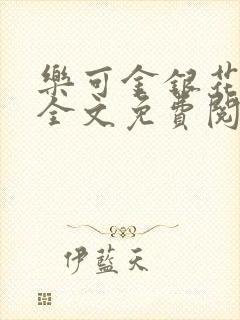 樂可金銀花
全文免費閱
伊藍天